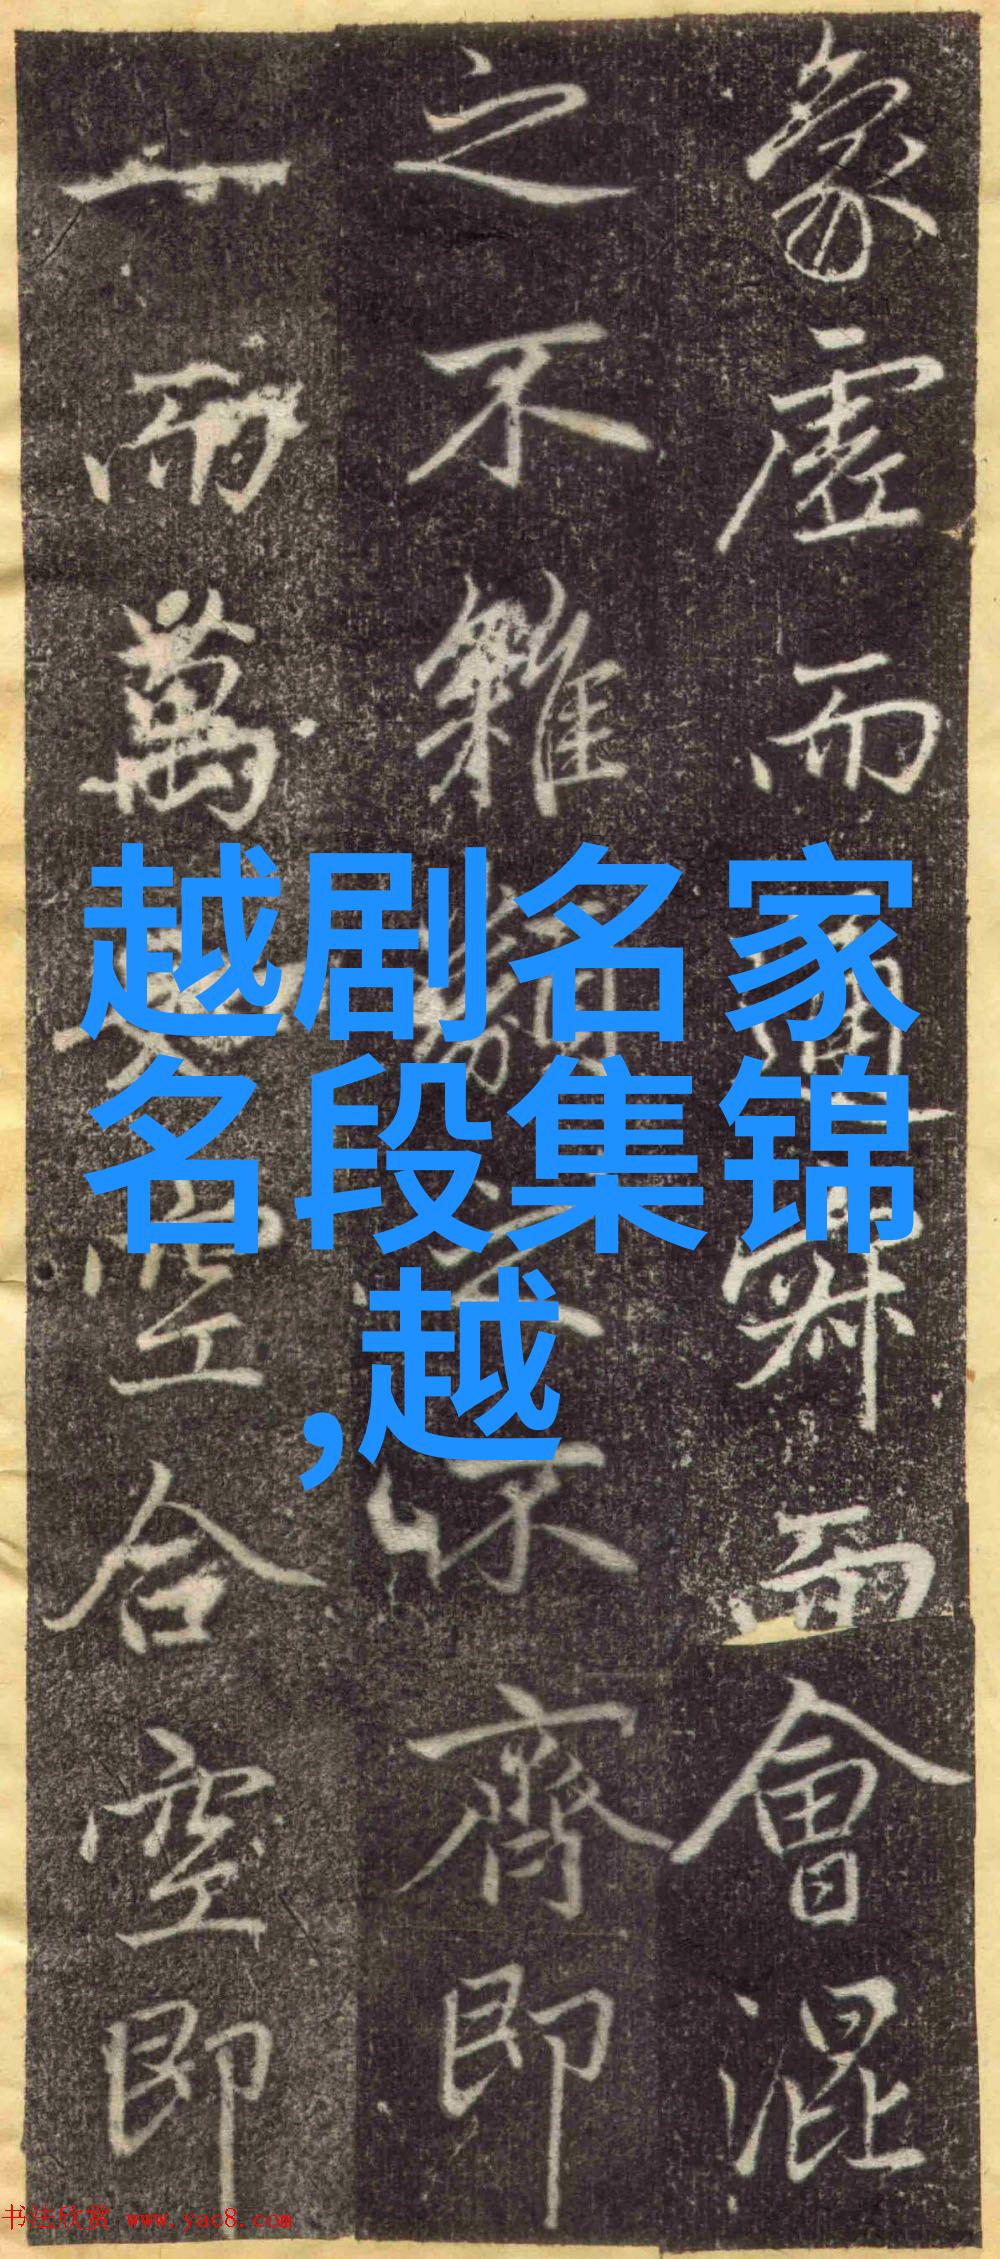 象虛而通解而會混
之不雜類之不齊即
一而萬空合空即
越剧名家
名段集锦
,越
书法欣赏 www.yac8.com